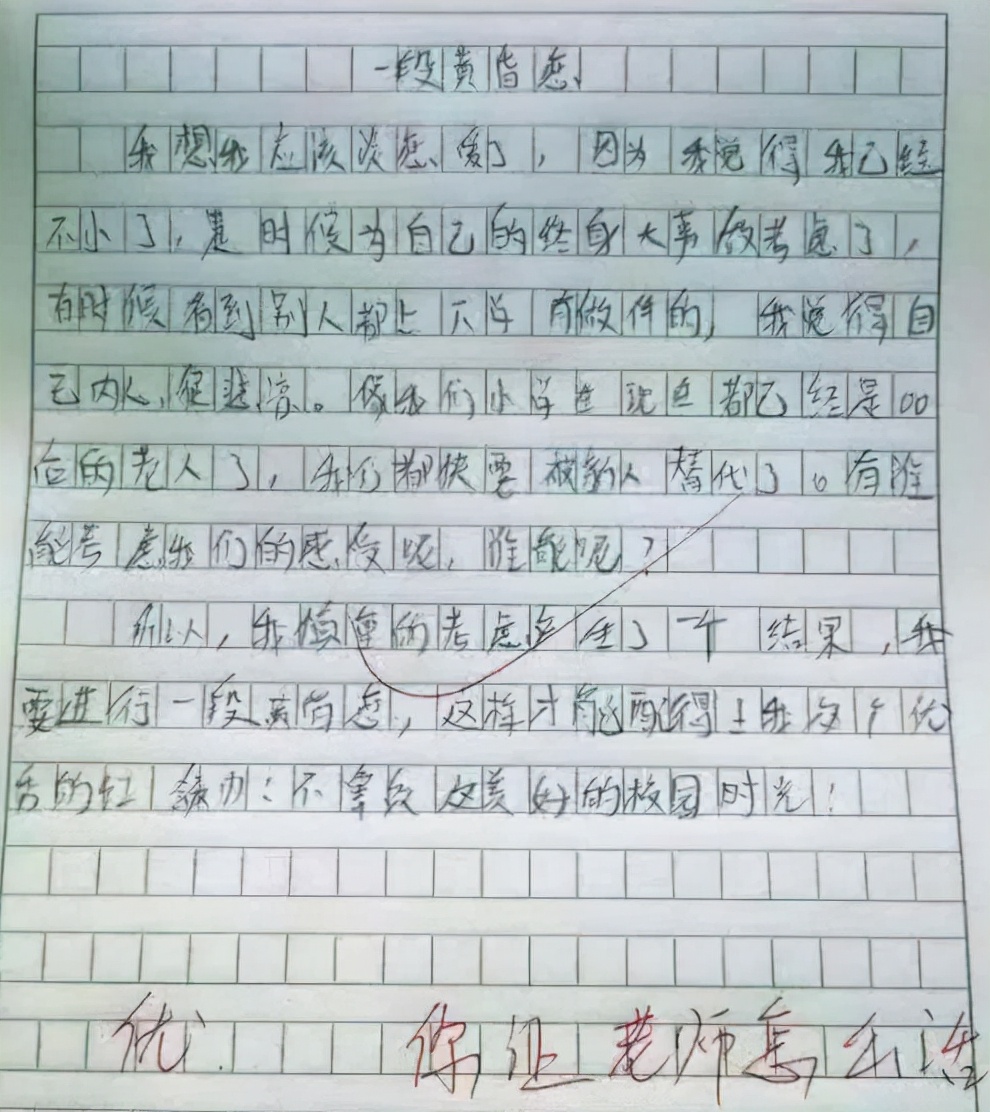 一段黄昏恋
我想我应该谈恋爱了，因为我觉得我已经
不小了，是时候为自己的终身大事做考虑了，
有时候看到别人都上下学有做伴的，我觉得自
己内心很悲凉。像我们小学生现在都已经是00
后的老人了，我们都快要被新人替代了。有谁
能考虑我们的感受呢，谁能呢？
所以，我慎重的考虑产生了一个结果，我
要进行一段黄昏恋，这样才能配得上我这个优
秀的红领巾！不辜负这美好的校园时光！
优. 你让老师怎么活